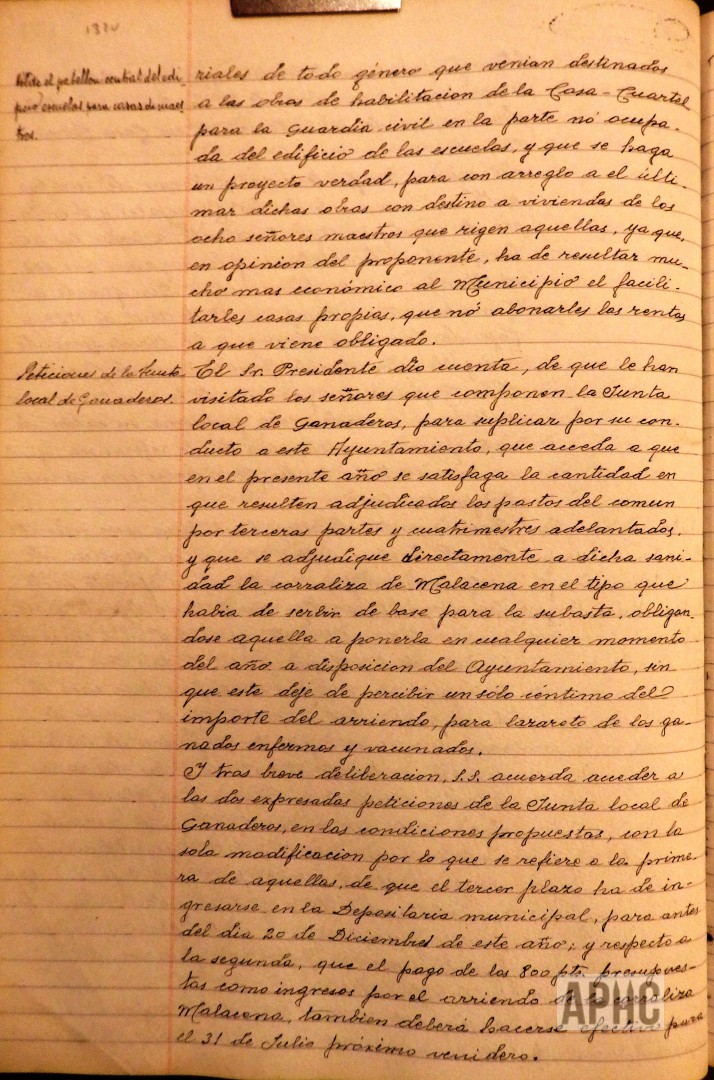 riales de todo género que venian destinados
a las obras de habilitacion de la Casa-Cuartel
para la Guardia civil en la parte nó ocupa-
da del edificio de las escuelas, y que se haga
un proyecto verdad, para con arreglo a el últi-
mar dichas obras con destino a viviendas de los
ocho señores maestros que rigen aquellas, ya que,
en opinion del proponente, ha de resultar mu-
cho mas económico al Municipio el facili-
tarles casas propias, que nó abonarles las rentas
a que viene obligado.
Peticiones de la Junta
local de Ganaderos.
El Sr. Presidente dio cuenta, de que le han
visitado los señores que componen la Junta
local de Ganaderos, para suplicar por su con-
ducto a este Ayuntamiento, que acceda a que
en el presente año se satisfaga la cantidad en
que resulten adjudicados los pastos del comun
por terceras partes y cuatrimestres adelantados,
y que se adjudique directamente a dicha sani-
dad la corraliza de Malacena en el tipo que
habia de serbir de base para la subasta, obligan-
dose aquella a ponerla en cualquier momento
del año a disposicion del Ayuntamiento, sin
que este deje de percibir un sólo céntimo del
importe del arriendo, para lazareto de los ga-
nados enfermos y vacunados.
Y tras breve deliberacion, S.S. acuerda acceder a
las dos expresadas peticiones de la Junta local de
Ganaderos, en las condiciones propuestas, con la
sola modificacion por lo que se refiere a la prime-
ra de aquellas, de que el tercer plazo ha de in-
gresarse en la Depositaria municipal, para antes
del dia 20 de Diciembre de este año; y respecto a
la segunda, que el pago de las 800 pts. presupues-
tas como ingresos por el arriendo de la corraliza
Malacena, tambien deberá hacerse efectivo para
el 31 de Julio próximo venidero.
APHC